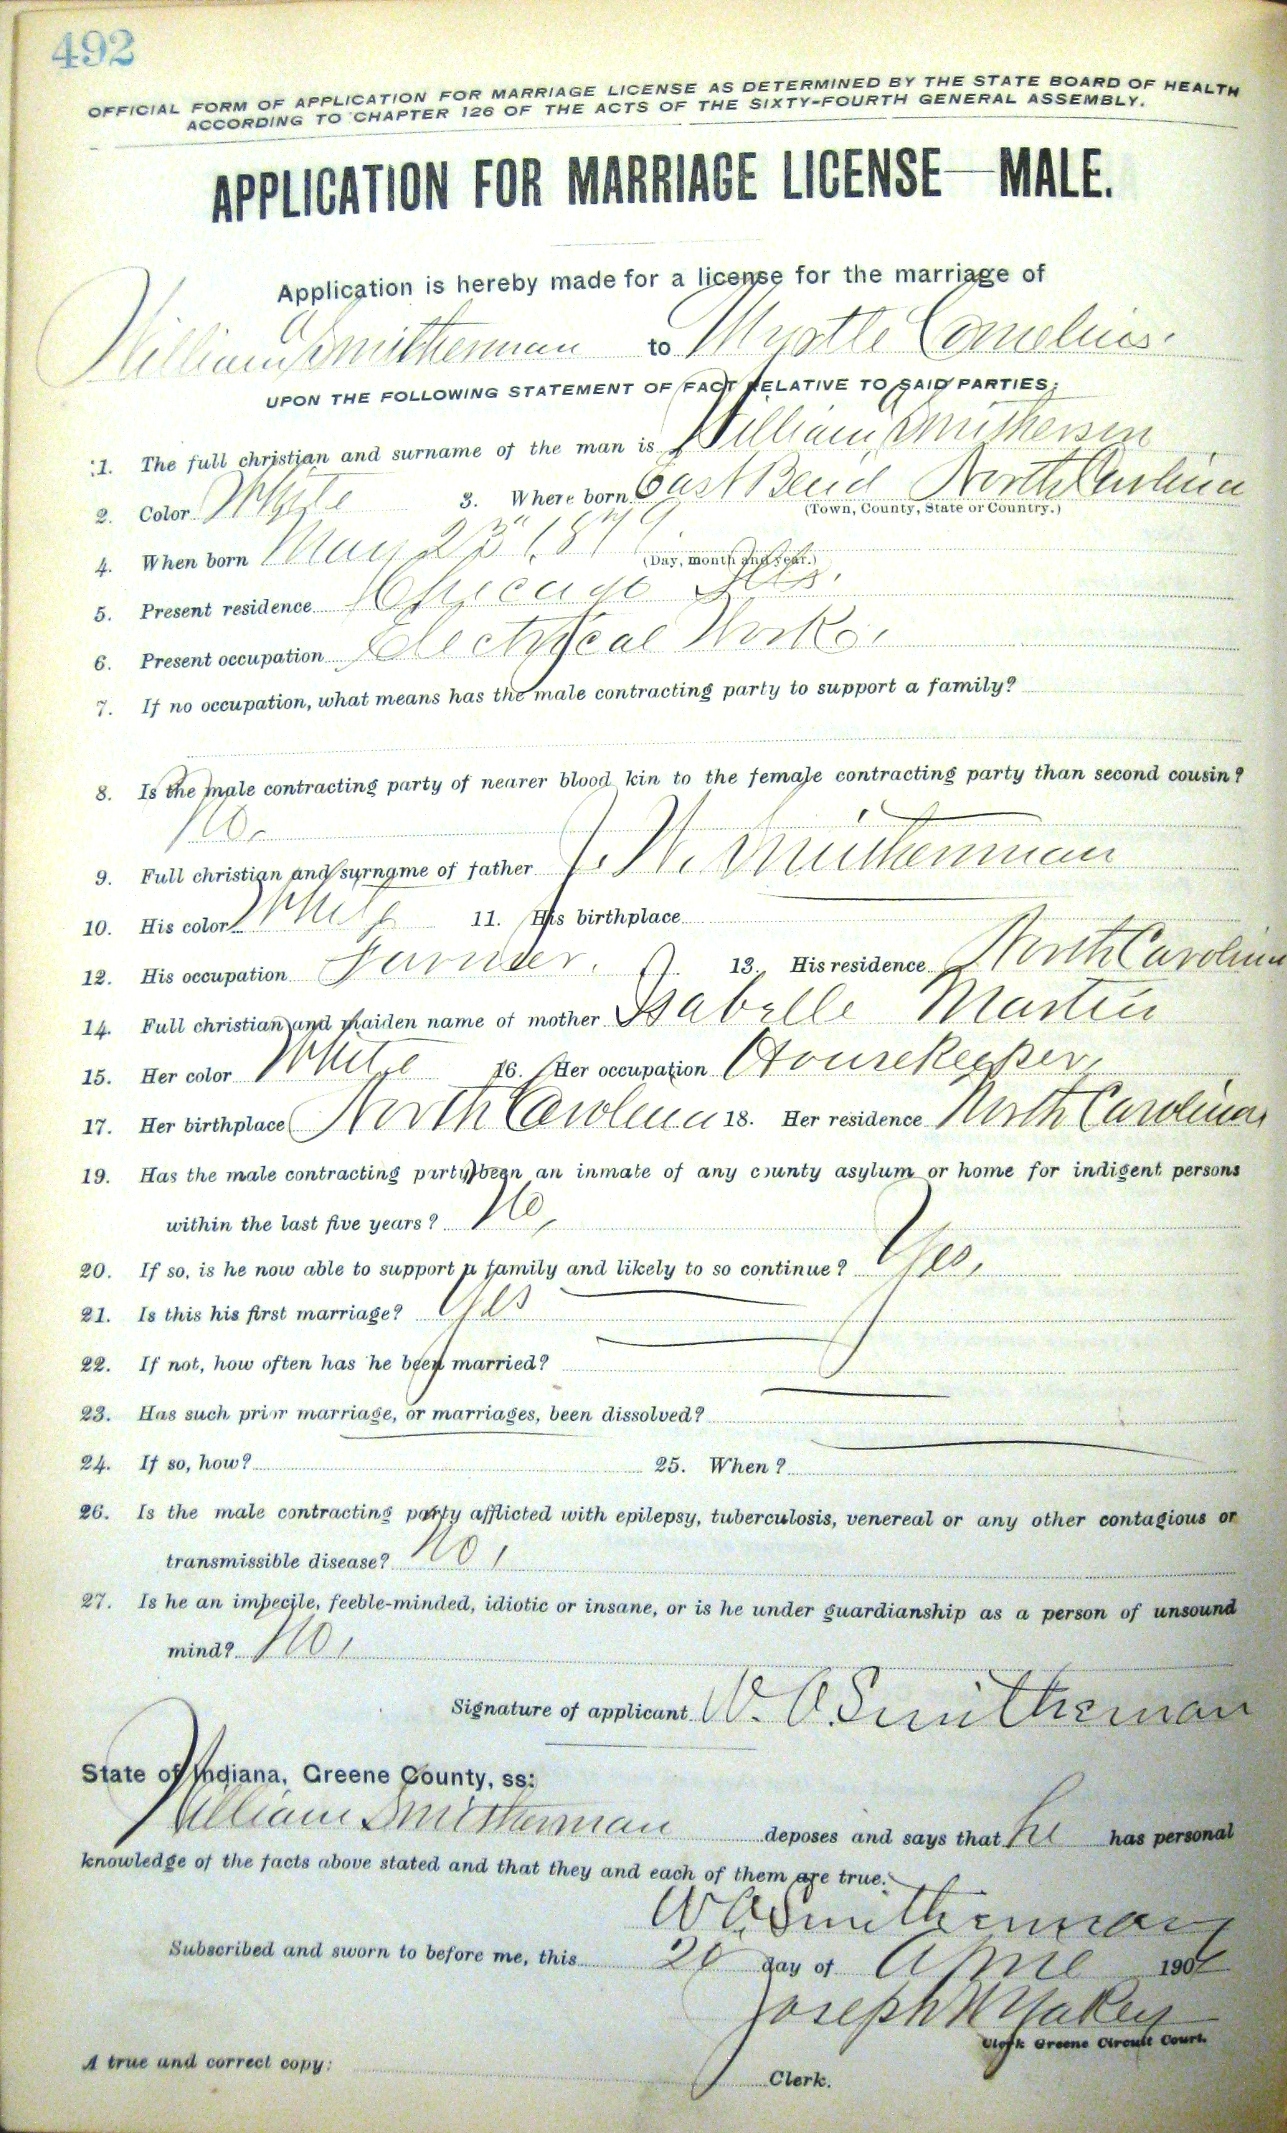 492
OFFICIAL FORM OF APPLICATION FOR MARRIAGE LICENSE AS DETERMINED BY THE STATE BOARD OF HEALTH
ACCORDING TO CHAPTER 126 OF THE ACTS OF THE SIXTY-FOURTH GENERAL ASSEMBLY.
APPLICATION FOR MARRIAGE LICENSE—MALE.
Application is hereby made for a license for the marriage of
William A Smitherman to Myrtle Cornelius.
UPON THE FOLLOWING STATEMENT OF FACT RELATIVE TO SAID PARTIES:
1. The full christian and surname of the man is William A Smitherson
2. Color White 3. Where born East Bend North Carolina
(Town, County, State or Country.)
4. When born May 23" 1879.
(Day, month and year.)
5. Present residence Chicago Ills.
6. Present occupation Electrical Work.
7. If no occupation, what means has the male contracting party to support a family?
8. Is the male contracting party of nearer blood kin to the female contracting party than second cousin?
No.
9. Full christian and surname of father J. W. Smitherman
10. His color White 11. His birthplace
12. His occupation Farmer. 13. His residence North Carolina
14. Full christian and maiden name of mother Isabelle Martin
15. Her color White 16. Her occupation Housekeeper,
17. Her birthplace North Carolina 18. Her residence North Carolina
19. Has the male contracting party been an inmate of any county asylum or home for indigent persons
within the last five years? No,
20. If so, is he now able to support a family and likely to so continue? Yes,
21. Is this his first marriage? Yes
22. If not, how often has he been married?
23. Has such prior marriage, or marriages, been dissolved?
24. If so, how? 25. When?
26. Is the male contracting party afflicted with epilepsy, tuberculosis, venereal or any other contagious or
transmissible disease? No,
27. Is he an imbecile, feeble-minded, idiotic or insane, or is he under guardianship as a person of unsound
mind? No,
Signature of applicant W. A. Smitherman
State of Indiana, Greene County, ss:
William Smitherman deposes and says that he has personal
knowledge of the facts above stated and that they and each of them are true.
W A Smitherman
Subscribed and sworn to before me, this 20 day of April 190
Joseph W Yakey
Clerk Greene Circuit Court.
A true and correct copy: Clerk.